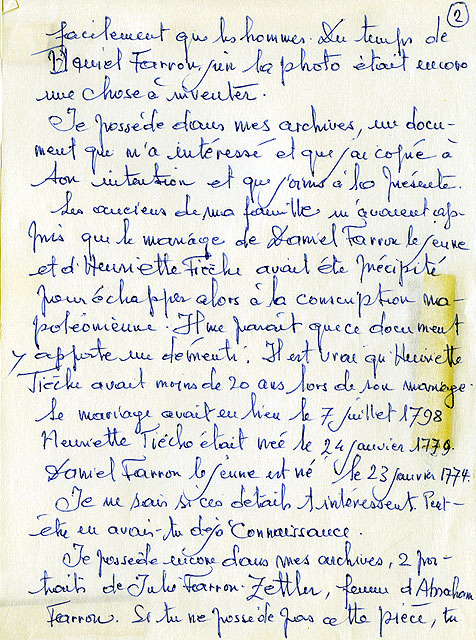 2
facilement que les hommes. Du temps de
Daniel Farron, jun la photo était encore
une chose à inventer.
Je possède dans mes archives, un docu-
ment qui m'a intéressé et que j'ai copié à
ton intention et que j'anne à la présente.
Les anciens de ma famille m'avaient ap-
pris que le mariage de Daniel Farron le jeune
et d'Henriette Tièche avait été précipité
pour échapper alors à la conscription na-
poléonienne. Il me parait que ce document
y apporte un démenti. Il est vrai qu'Henriette
Tièche avait moins de 20 ans lors de son mariage.
Le mariage avait eu lieu le 7 juillet 1798
Henriette Tièche était née le 24 janvier 1779.
Daniel Farron le jeune est né le 23 janvier 1774.
Je ne sais si ces détails t'intéressent. Peut-
être en avais-tu déjà connaissance.
Je possède encore dans mes archives, 2 por-
traits de Julie Farron-Zettler, femme d'Abraham
Farron. Si tu ne possède pas cette pièce, tu